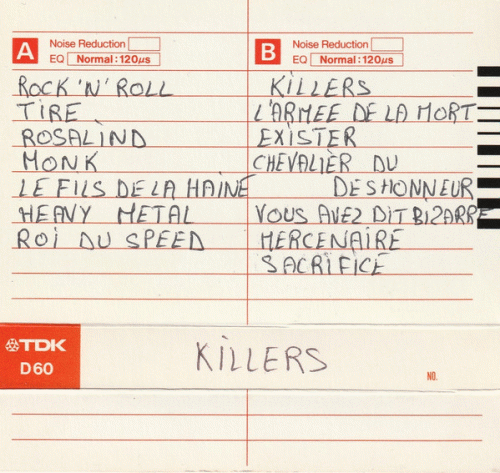 A Noise Reduction
EQ Normal:120µs
ROCK 'N' ROLL
TIRE
ROSALIND
MONK
LE FILS DE LA HAINE
HEAVY METAL
ROI DU SPEED
B Noise Reduction
EQ Normal:120µs
KILLERS
L'ARMEE DE LA MORT
EXISTER
CHEVALIER DU
DESHONNEUR
VOUS AVEZ DIT BIZARRE
MERCENAIRE
SACRIFICE
TDK
D60
KILLERS
NO.